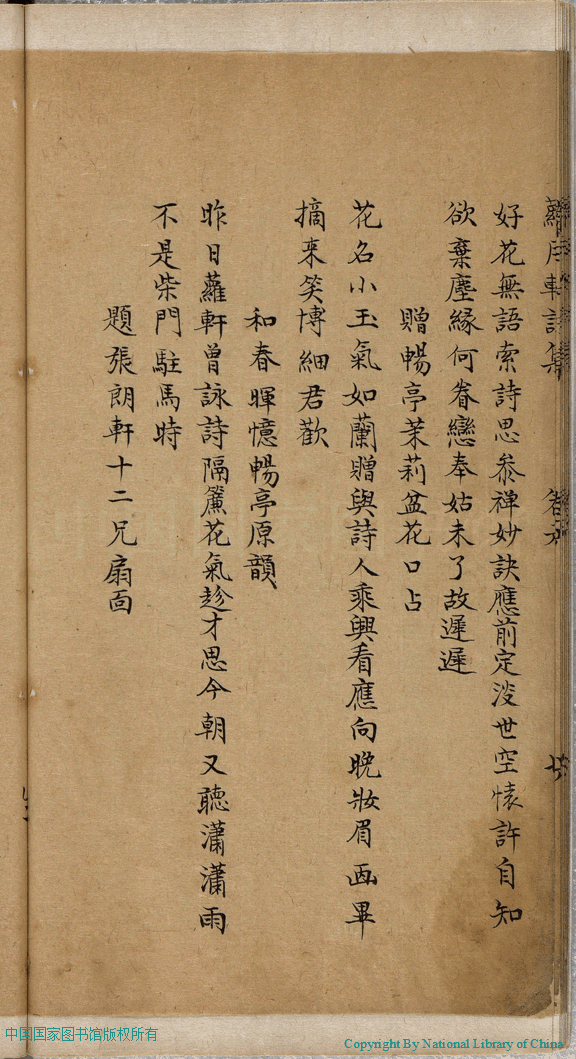 蘿月軒詩集
好花無語索詩思叅禪妙訣應前定没世空懷許自知
欲棄塵緣何眷戀奉姑未了故遲遲
贈暢亭茉莉盆花口占
花名小玉氣如蘭贈與詩人乘興看應向晚妝眉画畢
摘来笑博細君歡
和春暉憶暢亭原韻
昨日蘿軒曾詠詩隔簾花氣趁才思今朝又聽瀟瀟雨
不是柴門駐馬時
題張朗軒十二兄扇面
中国国家图书馆版权所有
Copyright By National Library of China